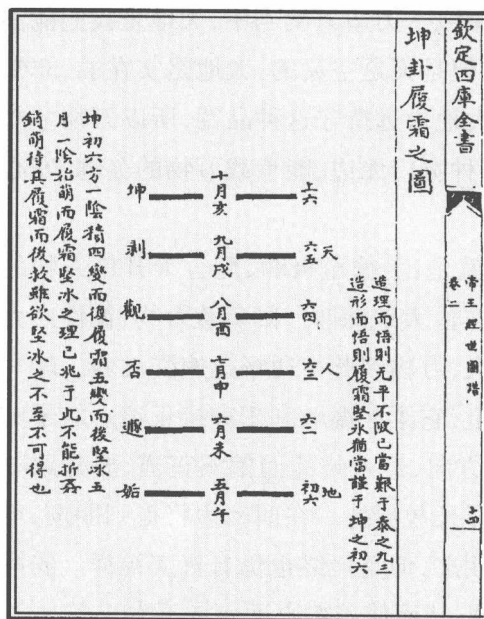 欽定四庫全書
帝王經世圖譜
卷二
十四
坤卦履霜之圖
造理而悟則无平不陂已當艱于泰之九三
造形而悟則履霜堅氷猶當謹于坤之初六
天
人
地
上六
六五
六四
六三
六二
初六
十月亥
九月戌
八月酉
七月申
六月未
五月午
坤
剥
觀
否
遯
姤
坤初六方一陰積四變而復履霜五變而後堅冰五
月一陰始萌而履霜堅冰之理已兆于此不能折姦
銷萌待其履霜而後救雖欲堅冰之不至不可得也